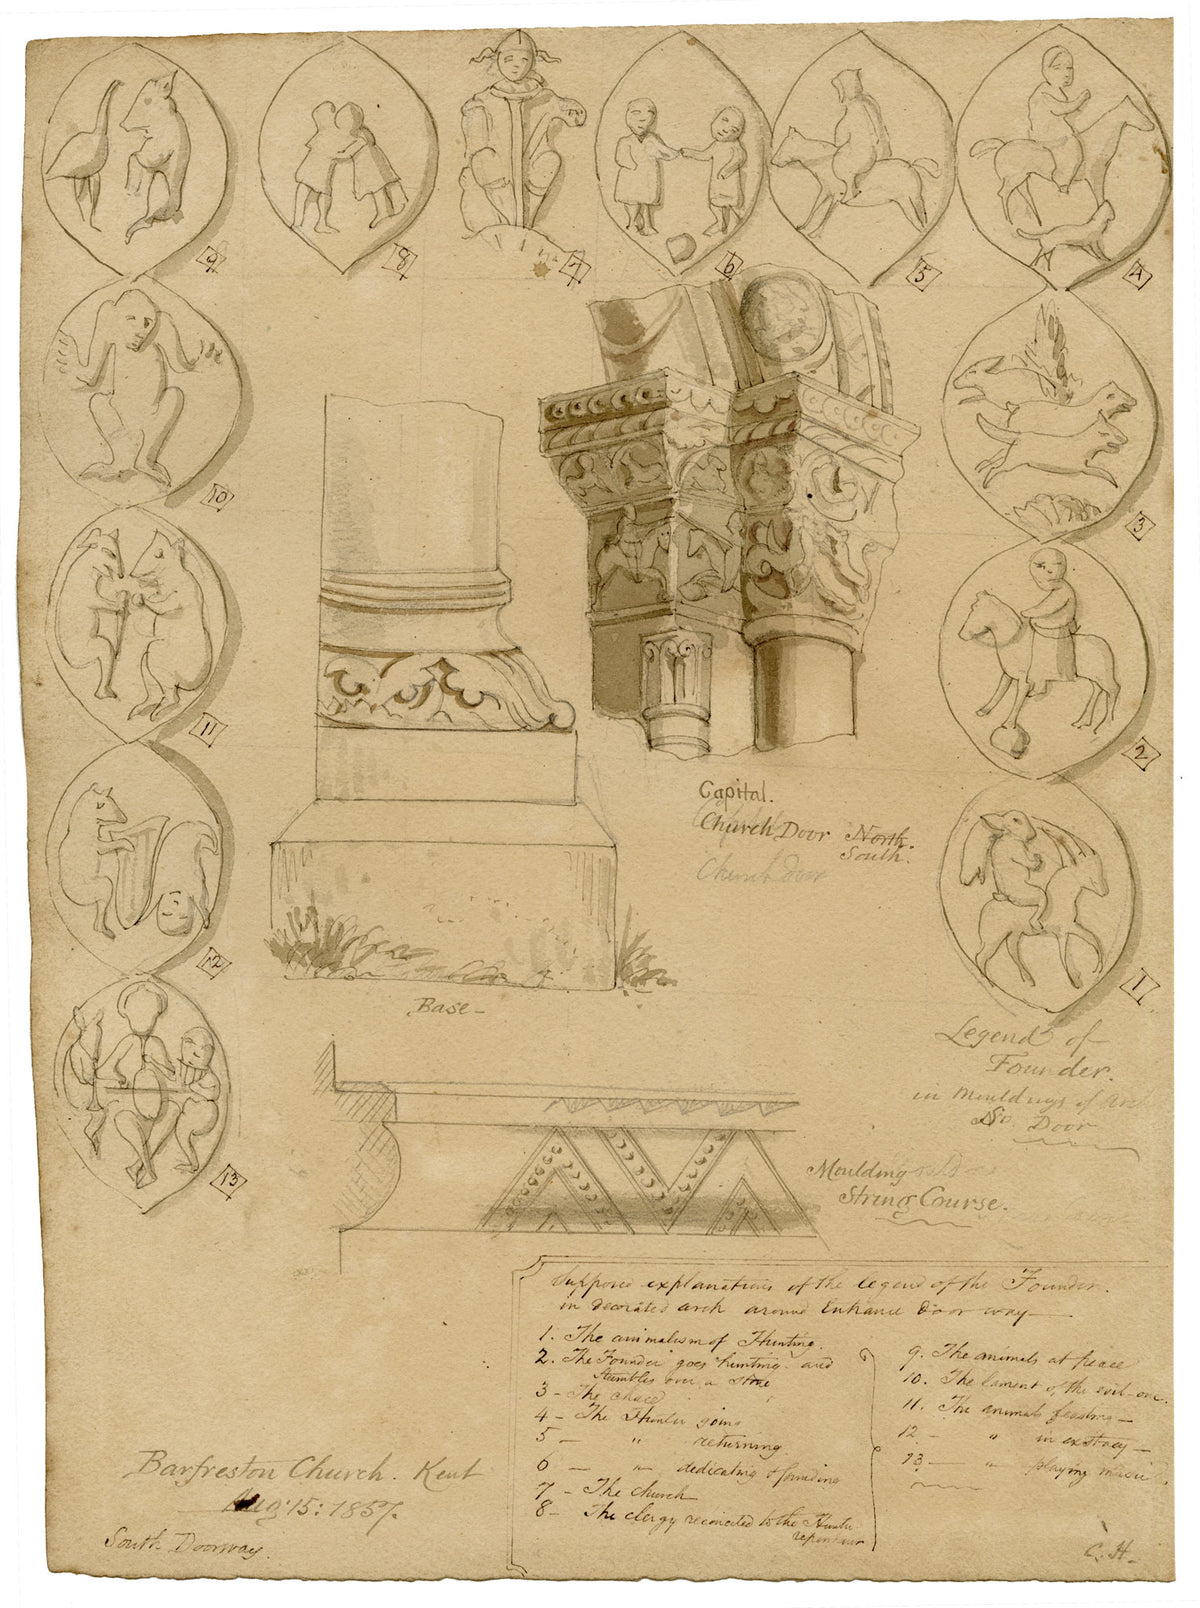 9
8
7
6
5
4
10
3
11
2
12
1
13
Capital.
Church Door North.
South.
Church door
Base -
Legend of
Founder.
in Mouldings of Arch
So. Door
Moulding
String Course.
Supposed explanations of the legend of the Founder.
in decorated arch around Entrance Door way
1. The animalism of Hunting.
2. The Founder goes hunting and
stumbles over a stone
3 - The chace
4 - The Hunter going
5 - " returning
6 - " dedicating & founding
7 - The church
8 - The clergy reconciled to the Hunter
9. The animals at peace
10. The lament of the evil one.
11. The animals feasting -
12 - " in exstacy -
13 - " playing music
Barfreston Church. Kent
Aug 15: 1857.
South Doorway.
C. H.